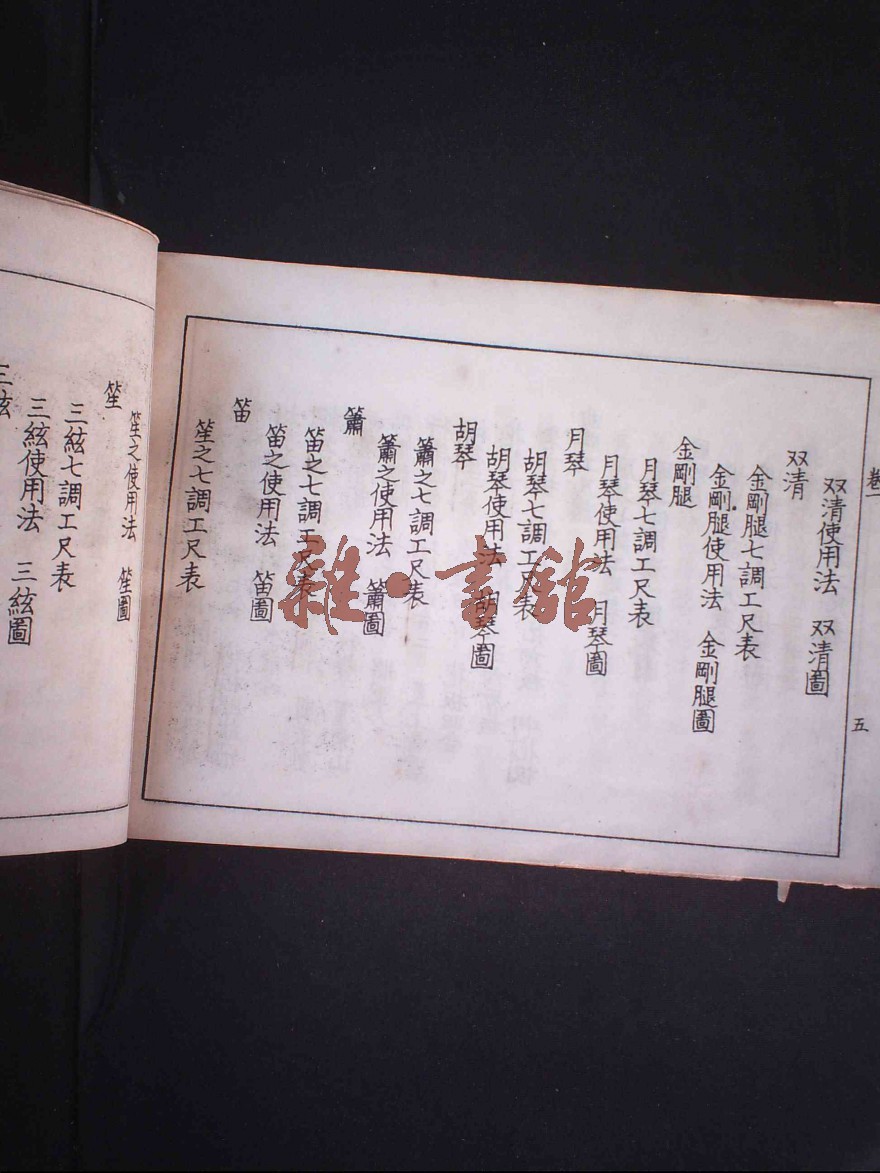 三絃
三絃使用法 三絃圖
三絃七調工尺表
笙
笙之使用法 笙圖
笙之七調工尺表
笛
笛之使用法 笛圖
笛之七調工尺表
簫
簫之使用法 簫圖
簫之七調工尺表
胡琴
胡琴使用法 胡琴圖
胡琴七調工尺表
月琴
月琴使用法 月琴圖
月琴七調工尺表
金剛腿
金剛腿使用法 金剛腿圖
金剛腿七調工尺表
双清
双清使用法 双清圖
卷一
五
雜·書館